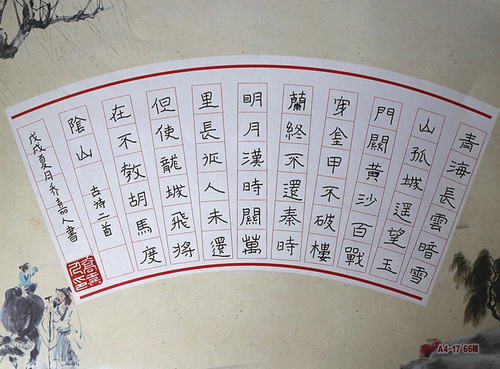 青海長雲暗雪
山孤城遥望玉
門關黄沙百戰
穿金甲不破樓
蘭終不還秦時
明月漢時關萬
里長征人未還
但使龍城飛将
在不教胡馬度
陰山 古诗二首
戊戌夏月乔嘉人書
A4-17 66